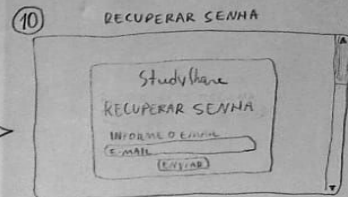 10
RECUPERAR SENHA
StudyShare
RECUPERAR SENHA
INFORME O EMAIL
E-MAIL
ENVIAR